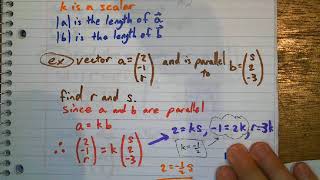 k is a scalar
|a| is the length of a⃗
|b| is the length of b⃗
ex) vector a = (2 -1 r) and is parallel to b = (s 2 -3)
find r and s.
since a and b are parallel
a = kb
∴ (2 -1 r) = k (s 2 -3)
2 = ks, -1 = 2k, r = -3k
k = -1/2
2 = -1/2 s